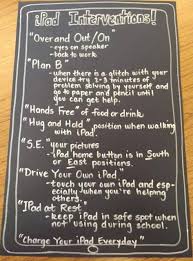 iPad Interventions!
"Over and Out/On"
- eyes on speaker
- back to work
"Plan B"
- when there is a glitch with your
device try 2-3 minutes of
problem solving by yourself and
go to paper and pencil until
you can get help.
"Hands Free" of food or drink
"Hug and Hold" position when walking
with iPad.
"S.E." your pictures
- iPad home button is in South
or East positions.
"Drive Your Own iPad"
- touch your own iPad and esp-
ecially when you're helping
others.
"iPad at Rest"
- keep iPad in safe spot when
not using during school.
"Charge Your iPad Everyday"